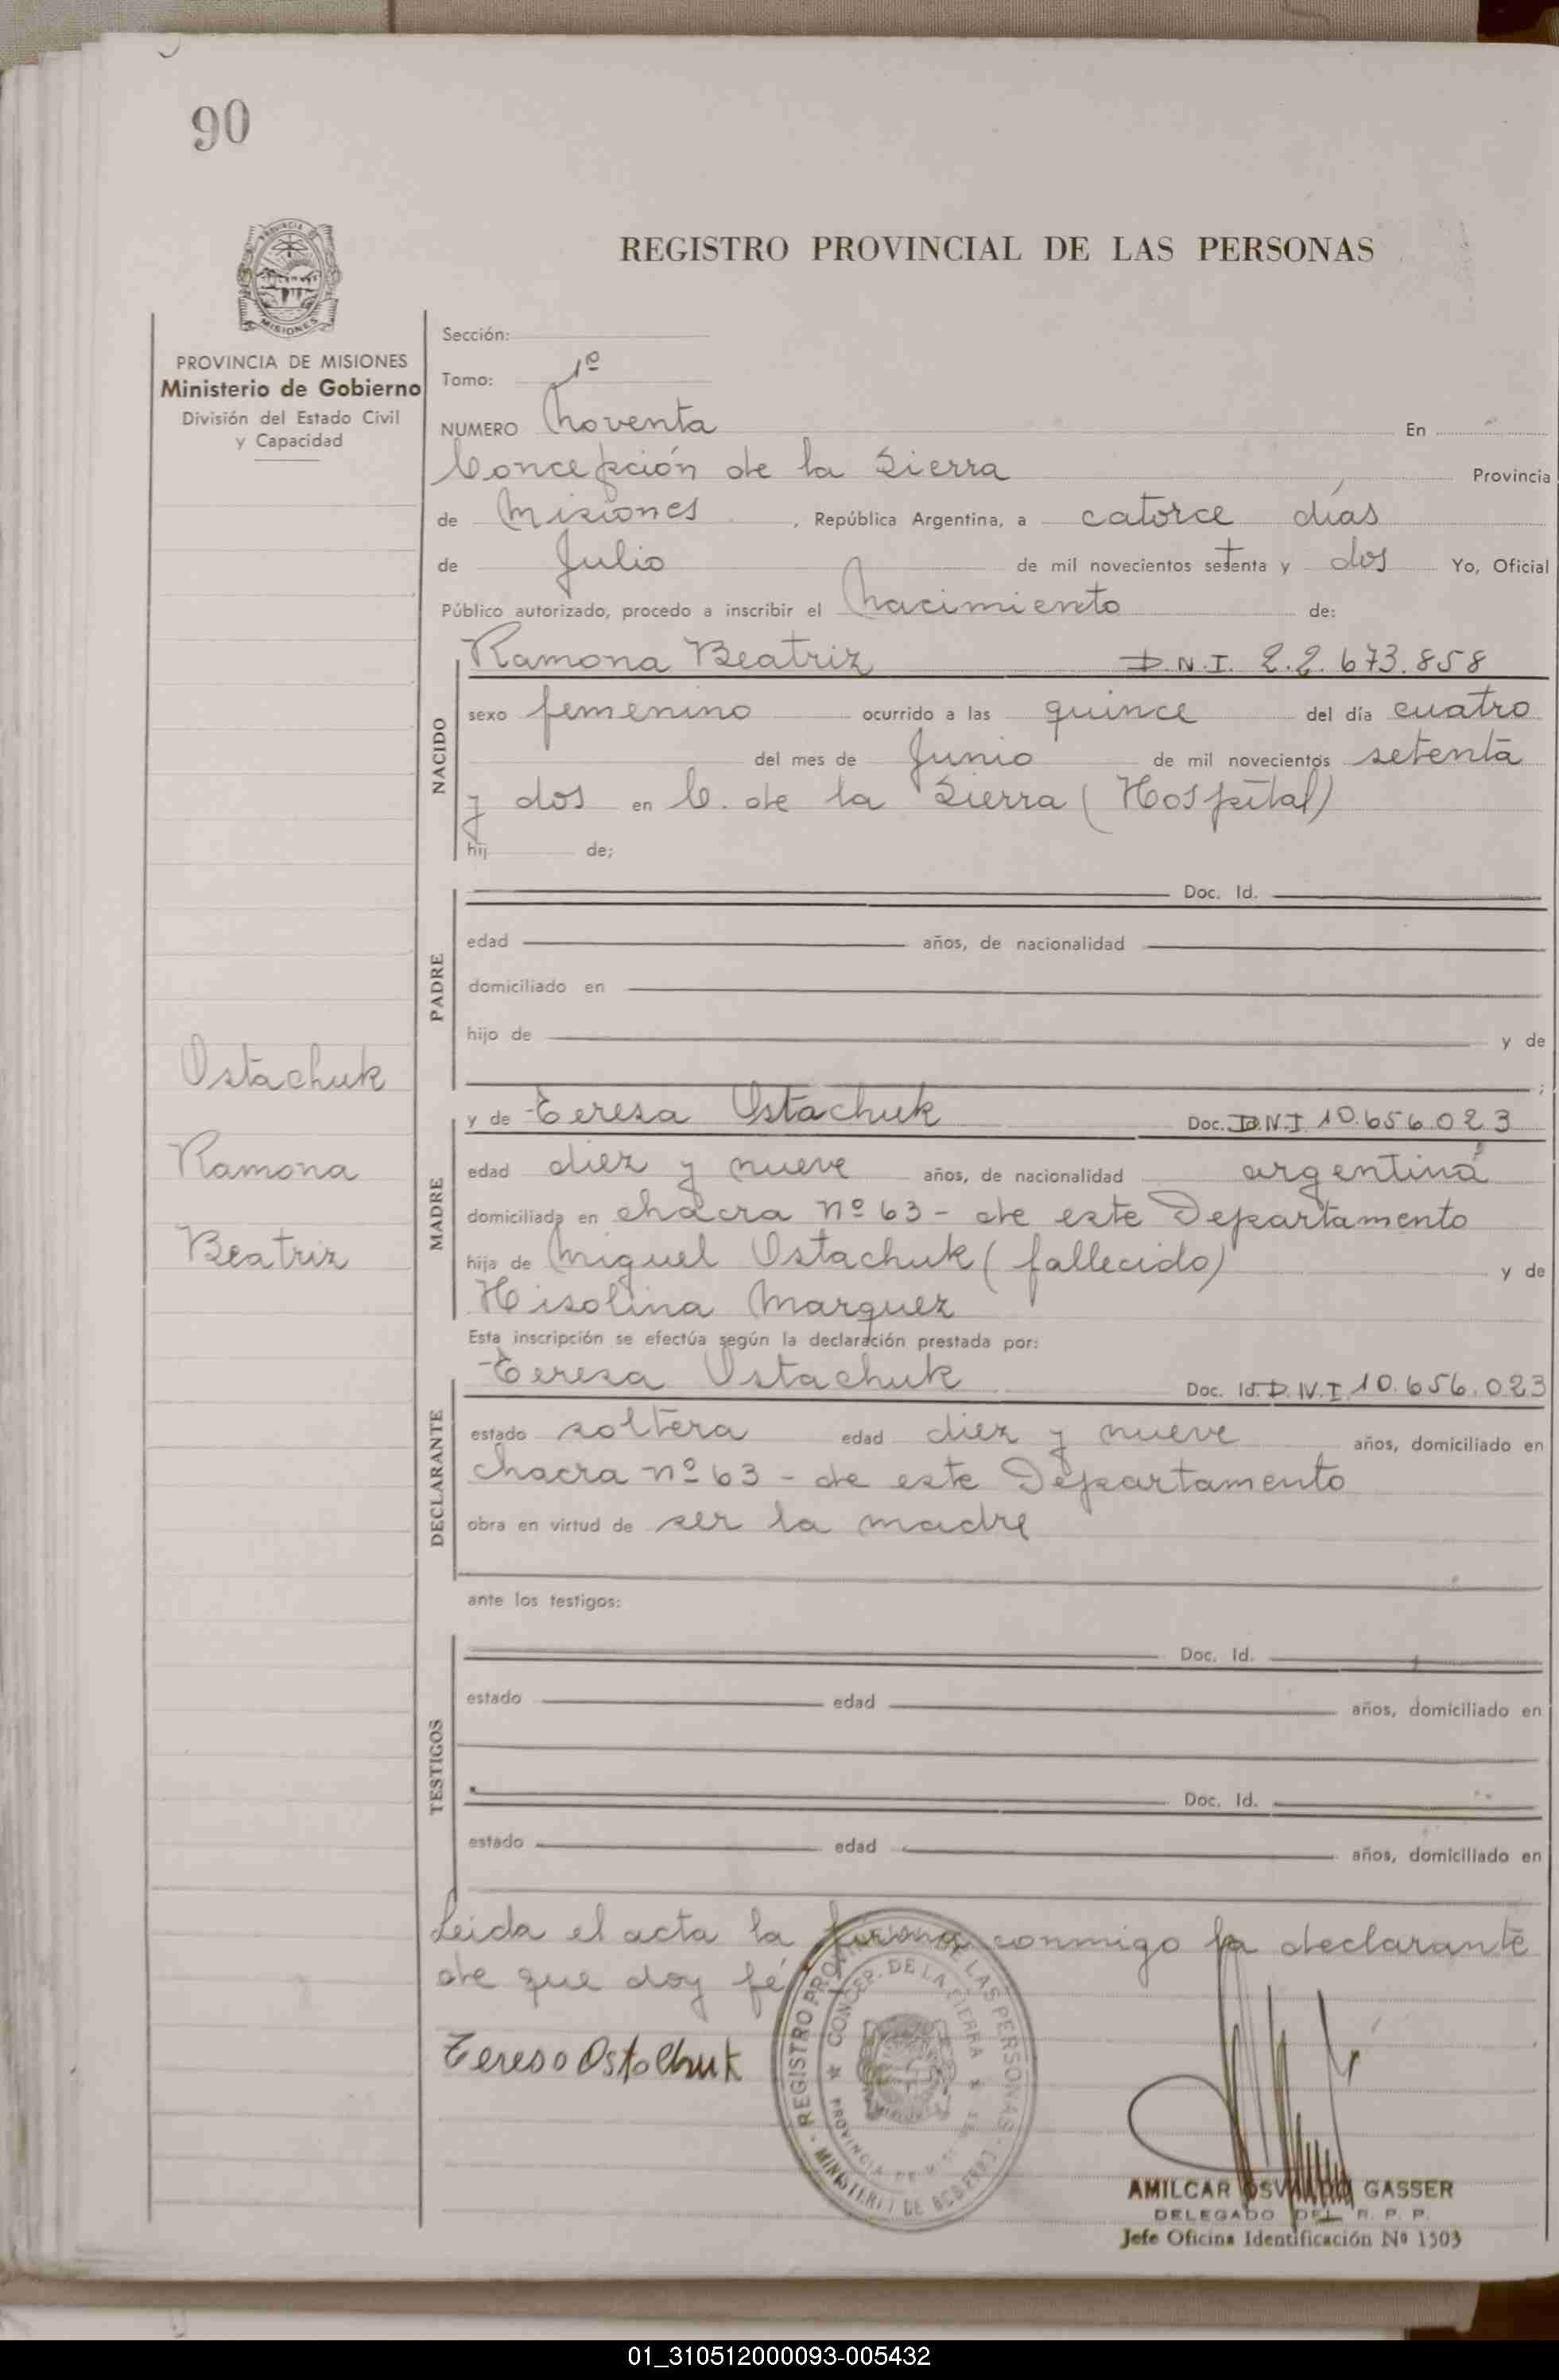 90
REGISTRO PROVINCIAL DE LAS PERSONAS
PROVINCIA DE MISIONES
Ministerio de Gobierno
División del Estado Civil
y Capacidad
Sección:
Tomo: 1º
NUMERO Noventa En
Concepción de la Sierra Provincia
de Misiones, República Argentina, a catorce días
de Julio de mil novecientos setenta y dos Yo, Oficial
Público autorizado, procedo a inscribir el Nacimiento de:
NACIDO
Ramona Beatriz D.N.I. 22.673.858
sexo femenino ocurrido a las quince del día cuatro
del mes de Junio de mil novecientos setenta
y dos en C. de la Sierra (Hospital)
hij de;
PADRE
Doc. Id.
edad años, de nacionalidad
domiciliado en
hijo de y de
;
Ostachuk
Ramona
Beatriz
MADRE
y de Teresa Ostachuk Doc. D.N.I 10.656.023
edad diez y nueve años, de nacionalidad argentina
domiciliada en chacra nº 63 - de este Departamento
hija de Miguel Ostachuk (fallecido) y de
Hisolina Marquez
Esta inscripción se efectúa según la declaración prestada por:
DECLARANTE
Teresa Ostachuk Doc. Id. D.N.I. 10.656.023
estado soltera edad diez y nueve años, domiciliado en
chacra nº 63 - de este Departamento
obra en virtud de ser la madre
ante los testigos:
TESTIGOS
Doc. Id.
estado edad años, domiciliado en
Doc. Id.
estado edad años, domiciliado en
Leida el acta la firma conmigo la declarante
de que doy fé
Teresa Ostachuk
REGISTRO PROVINCIAL DE LAS PERSONAS
CONCEP. DE LA SIERRA
PROVINCIA DE MISIONES
MINISTERIO DE GOBIERNO
AMILCAR OSVALDO GASSER
DELEGADO DEL R. P. P.
Jefe Oficina Identificación Nº 1503
01_310512000093-005432